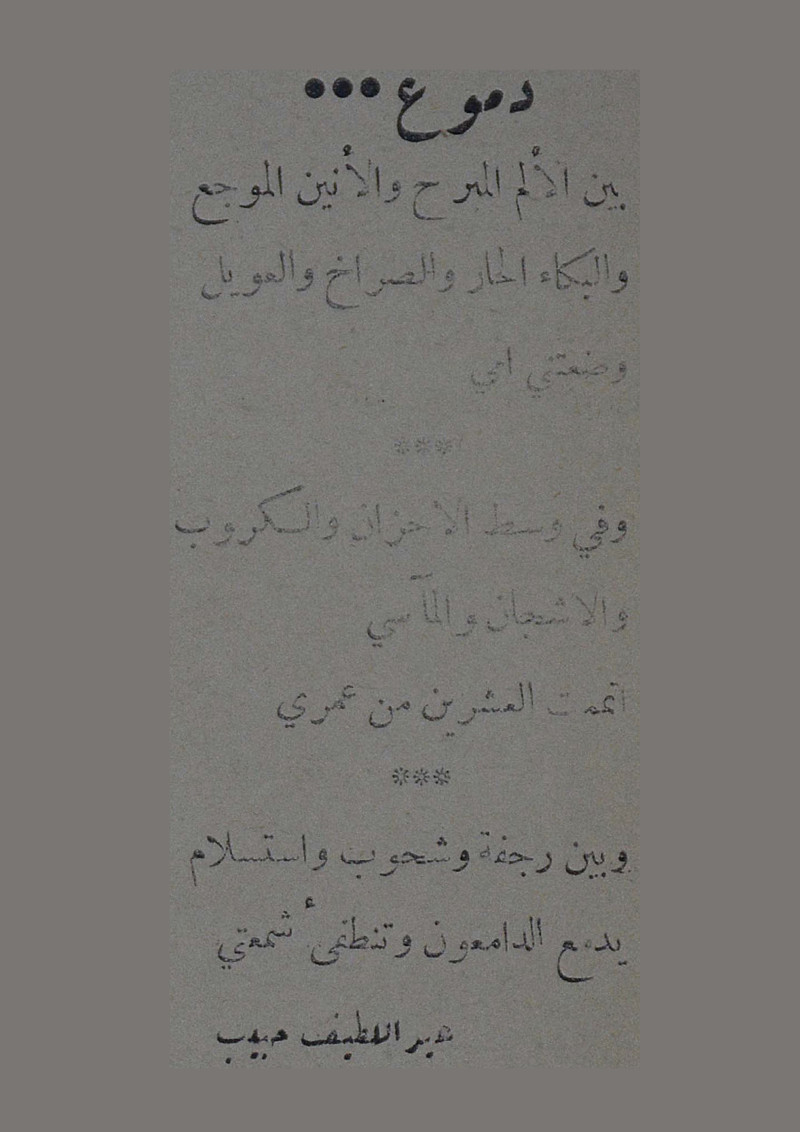 دموع •••
بين الألم المبرح والأنين الموجع
والبكاء الحار والصراخ والعويل
وضعتني امي
***
وفي وسط الاحزان والكروب
والاشجان والمآسي
اتممت العشرين من عمري
***
وبين رجفة وشحوب واستسلام
يدمع الدامعون وتنطفىء شمعتي
عبد اللطيف حبيب